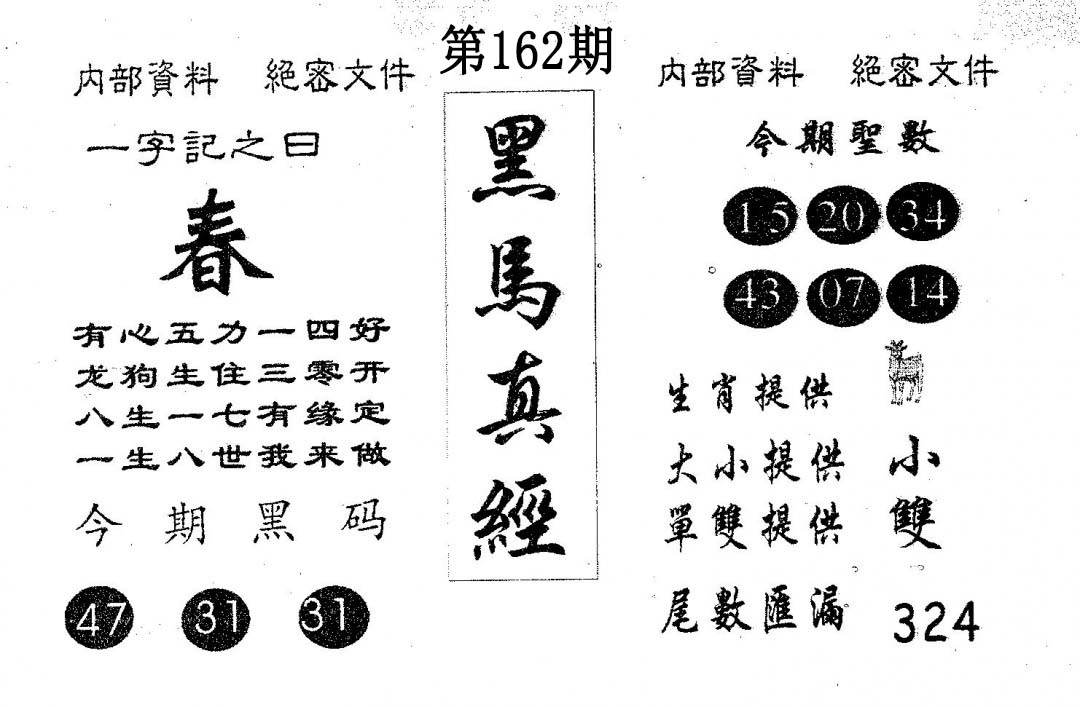 第162期
内部資料 絕密文件
一字記之曰
春
有心五力一四好
龙狗生住三零开
八生一七有缘定
一生八世我来做
今期黑码
47 31 31
黑馬真經
内部資料 絕密文件
今期聖數
15 20 34
43 07 14
生肖提供
大小提供 小
單雙提供 雙
尾數匯漏 324